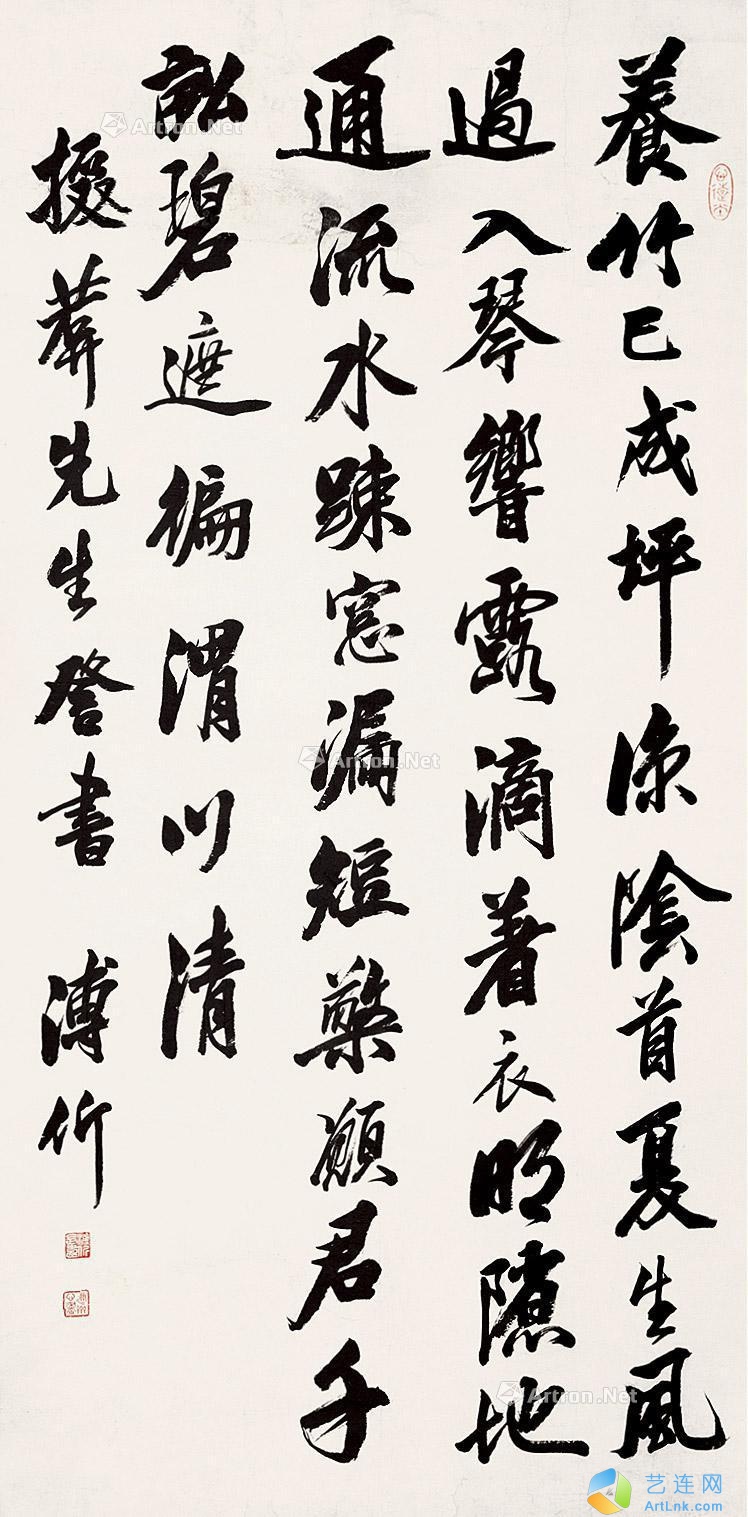 養竹已成坪涼陰首夏生風
過入琴響露滴著衣明隱地
通流水踈窓漏短檠願君千
畝碧遮徧渭川清
掇先生詧書 溥伒
Artron.Net
Artron.Net
Artron.Net
Artron.Net
Artron.Net
艺连网
ArtLnk.com